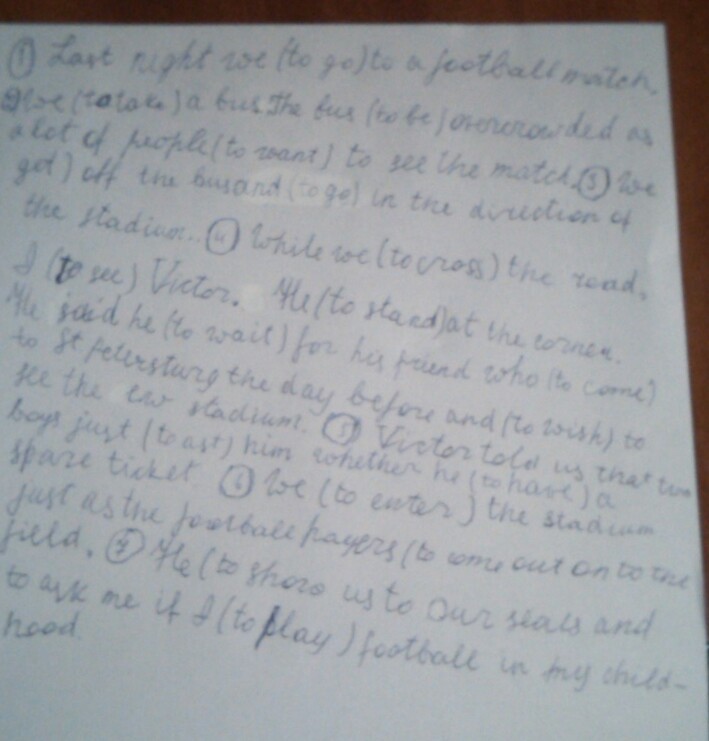 ① Last night we (to go) to a football match.
② We (to take) a bus. The bus (to be) overcrowded as
a lot of people (to want) to see the match. ③ We
get) off the bus and (to go) in the direction of
the stadium.. ④ While we (to cross) the road,
I (to see) Victor. He (to stand) at the corner.
He said he (to wait) for his friend who (to come)
to St Petersburg the day before and (to wish) to
see the new stadium. ⑤ Victor told us that two
boys just (to ask) him whether he (to have) a
spare ticket. ⑥ We (to enter) the stadium
just as the football payers (to come out on to the
field. ⑦ He (to show us to our seats and
to ask me if I (to play) football in my child-
hood